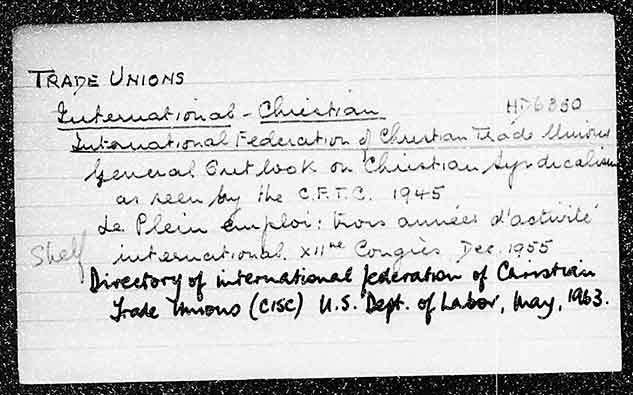 TRADE UNIONS
International - Christian HD6350
International Federation of Christian Trade Unions
General Outlook on Christian Syndicalism
as seen by the C.F.T.C. 1945
Le Plein emploi: trois années d'activité
Shelf international. XIIme Congrès. Dec. 1955
Directory of international federation of Christian
Trade Unions (CISC) U.S. Dept. of Labor, May, 1963.